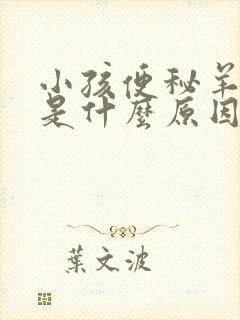 小孩便秘羊
是什麼原因
葉文波